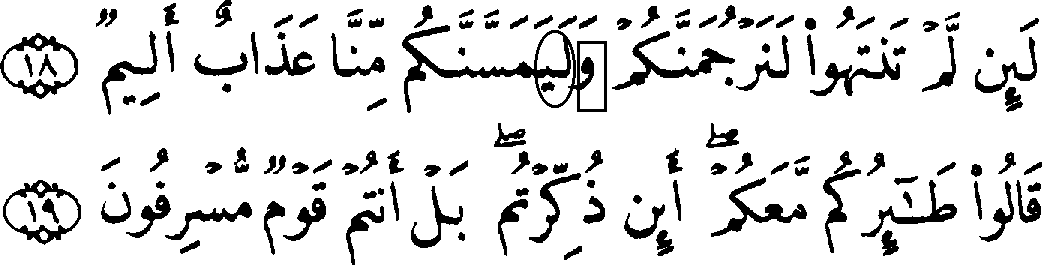 لَئِن لَّمْ تَنتَهُوا۟ لَنَرْجُمَنَّكُمْ وَلَيَمَسَّنَّكُم مِّنَّا عَذَابٌ أَلِيمٌ ١٨
قَالُوا۟ طَـٰٓئِرُكُم مَّعَكُمْ ۖ أَئِن ذُكِّرْتُم ۖ بَلْ أَنتُمْ قَوْمٌ مُّسْرِفُونَ ١٩